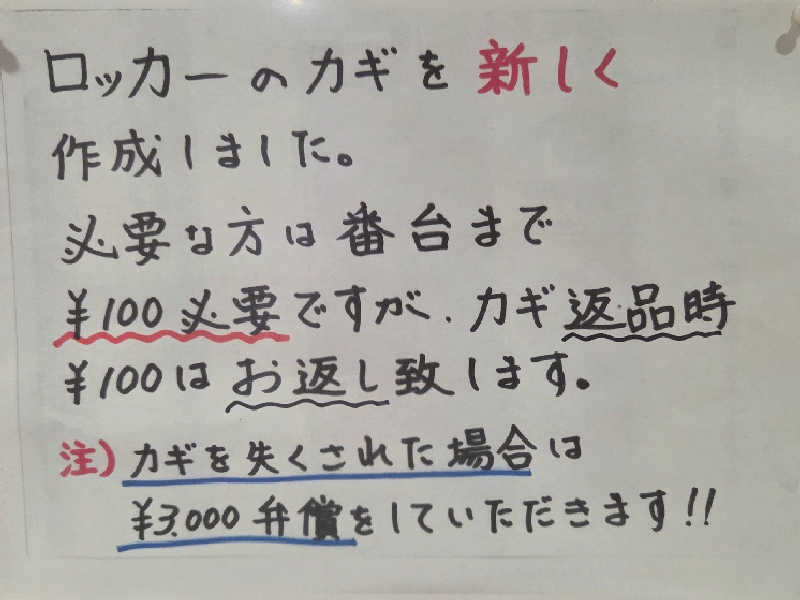 ロッカーのカギを新しく
作成しました。
必要な方は番台まで
¥100必要ですが、カギ返品時
¥100はお返し致します。
注)カギを失くされた場合は
¥3.000弁償をしていただきます!!